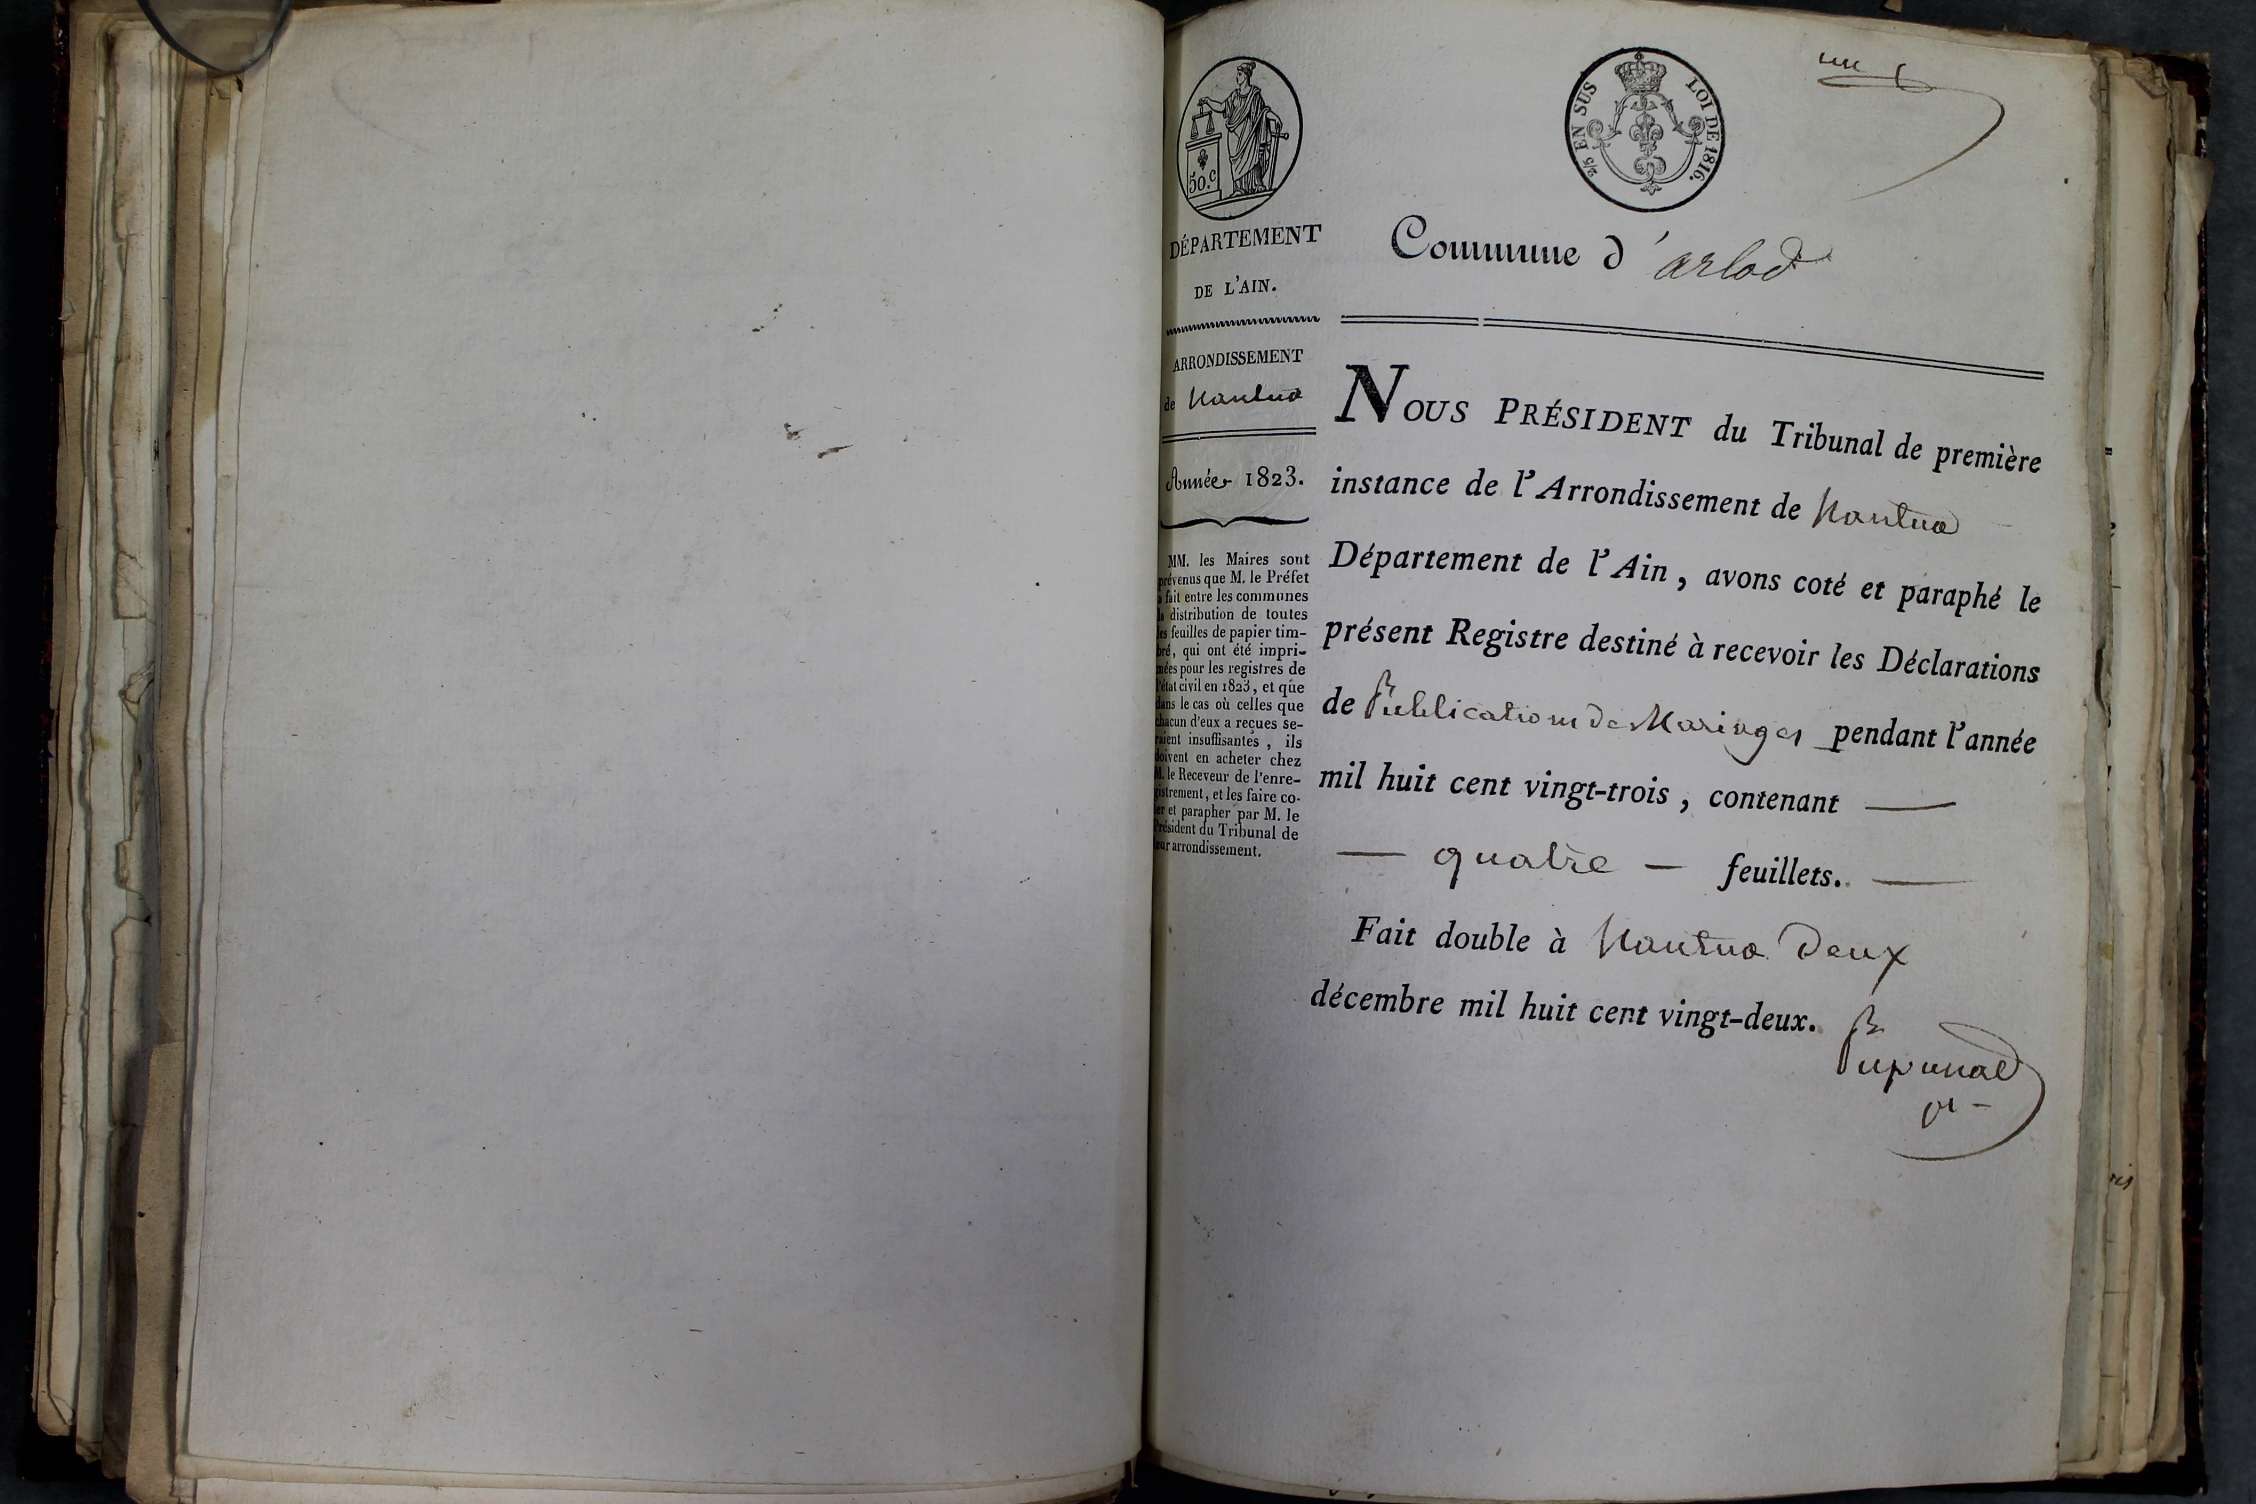 50.c
2/5 EN SUS
LOI DE 1816.
un
DÉPARTEMENT
DE L'AIN.
ARRONDISSEMENT
de Nantua
Année 1823.
MM. les Maires sont
prévenus que M. le Préfet
a fait entre les communes
la distribution de toutes
les feuilles de papier tim-
bré, qui ont été impri-
mées pour les registres de
l'état civil en 1823, et que
dans le cas où celles que
chacun d'eux a reçues se-
raient insuffisantes, ils
doivent en acheter chez
M. le Receveur de l'enre-
gistrement, et les faire co-
ter et parapher par M. le
Président du Tribunal de
leur arrondissement.
Commune d'arlod
NOUS PRÉSIDENT du Tribunal de première
instance de l'Arrondissement de Nantua
Département de l'Ain, avons coté et paraphé le
présent Registre destiné à recevoir les Déclarations
de Publications de Mariages pendant l'année
mil huit cent vingt-trois, contenant —
— quatre — feuillets. —
Fait double à Nantua Deux
décembre mil huit cent vingt-deux.